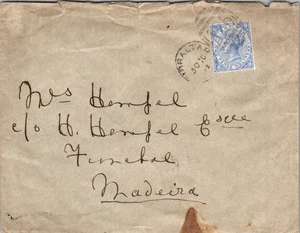 GIBRALTAR
Mrs Hempel
c/o H. Hempel Esqre
Funchal
Madeira